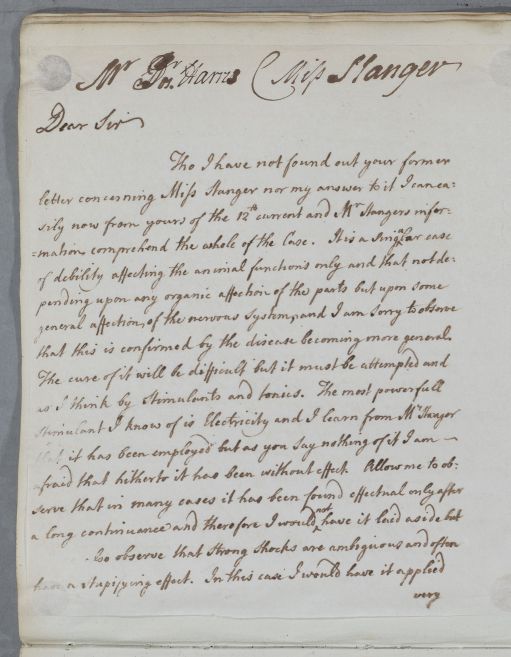 Mr Dr. Harris (Miss Stanger
Dear Sir
Tho I have not found out your former
letter concerning Miss Stanger nor my answer to it I can ea:
sily now from yours of the 12th current and Mr Stangers infor:
:mation comprehend the whole of the Case. It is a singular case
of debility affecting the animal functions only and that not de:
pending upon any organic affection of the parts but upon some
general affection of the nervous system, and I am sorry to observe
that this is confirmed by the disease becoming more general.
The cure of it will be difficult but it must be attempted and
as I think by Stimulants and tonics. The most powerfull
Stimulant I know of is Electricity and I learn from Mr Stanger
that it has been employed but as you say nothing of it I am
afraid that hitherto it has been without effect. Allow me to ob:
serve that in many cases it has been found effectual only after
a long continuance and therefore I would not have it laid aside but
also observe that strong shocks are ambiguous and often
have a stupifying effect. In this case I would have it applied
very